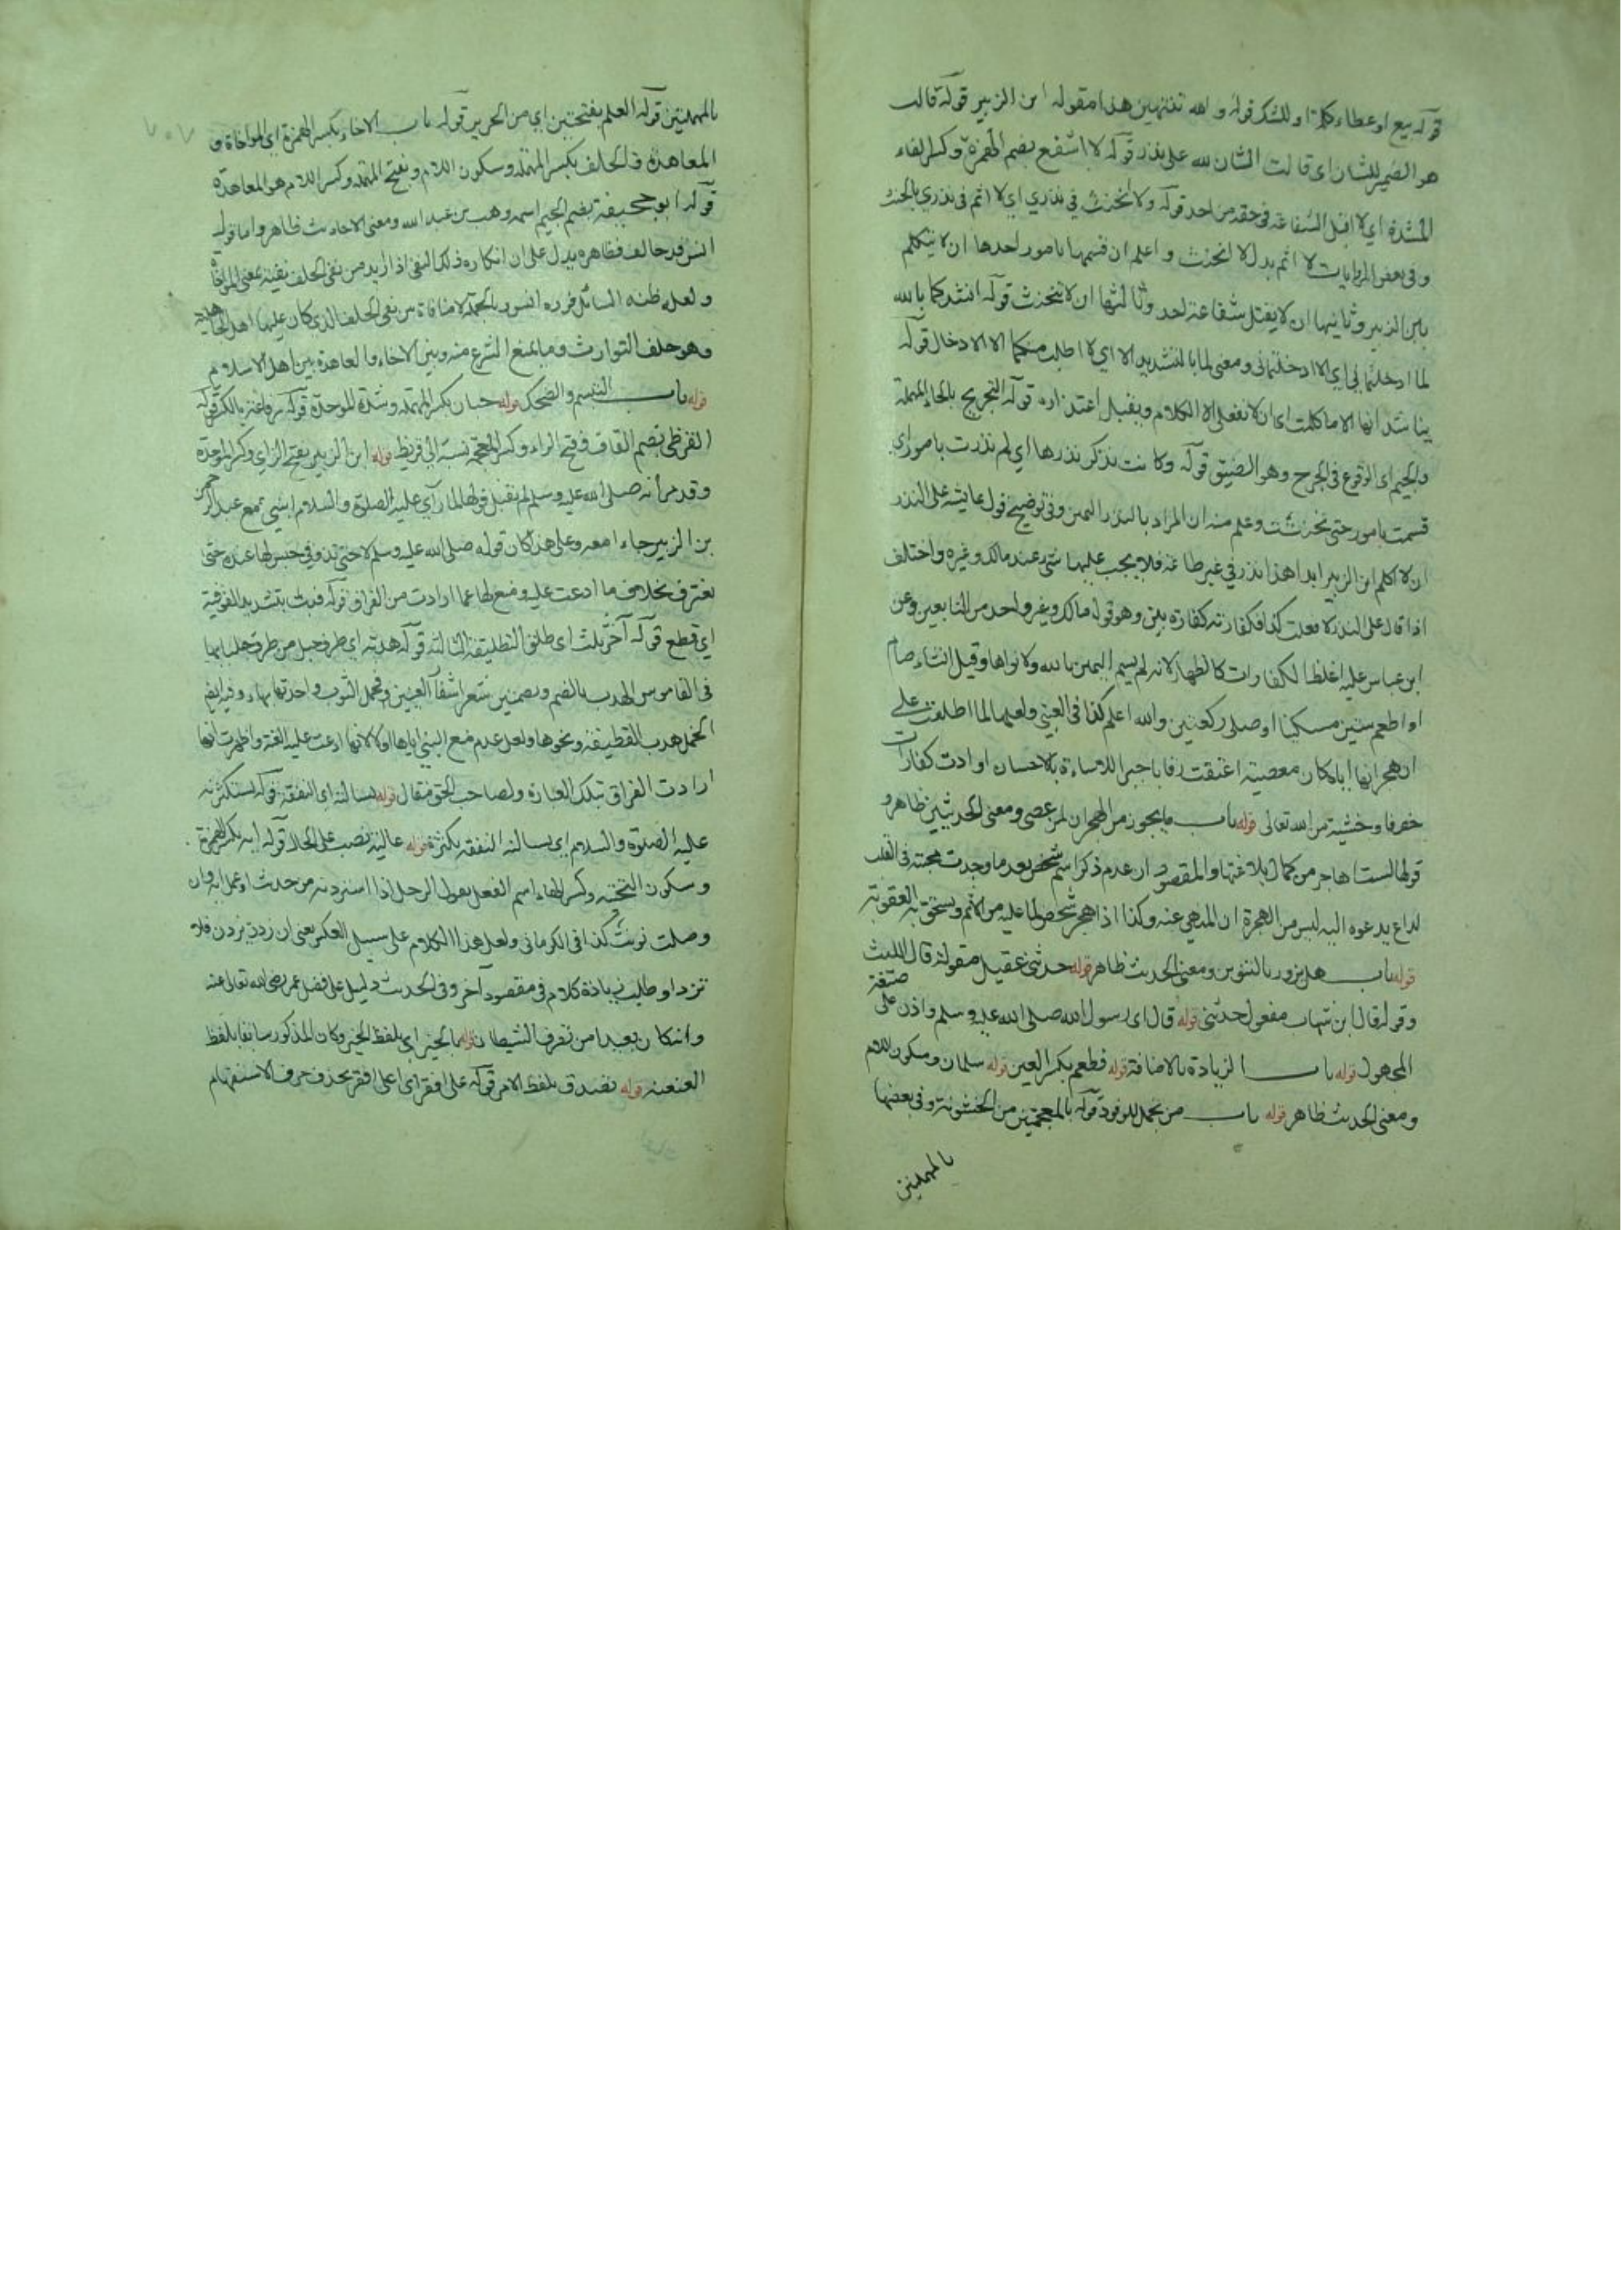 قوله بيع او عطاء كلمة او للشك قوله والله تنتهين هذا مقوله ابن الزبير قوله قالت
هو الضمير للشان اي قالت الشان لله على نذر قوله لا اشفع بضم الهمزة وكسر الفاء
المشددة اي لا اقبل الشفاعة في حقه من احد قوله ولا اتحنث في نذري اي لا اثم في نذري بالحنث
وفي بعض الروايات لا اثم بدل لا اتحنث واعلم ان قسمها بامور احدها ان لا يتكلم
بابن الزبير وثانيها ان لا يقبل شفاعة احد وثالثها ان لا تتحنث قوله انشدكما بالله
لما ادخلتماني اي الا ادخلتماني ومعنى لما بالتشديد الا اي لا اطلب منكما الا الادخال قوله
يناشدانها الا ما كلمت اي ان لا تفعل الا الكلام ويقبل اعتذاره قوله التحريج بالحاء المهملة
والجيم اي الوقوع في الحرج وهو الضيق قوله وكانت تذكر نذرها اي لم نذرت بامور اي
قسمت بامور حتى تحنثت وعلم منه ان المراد بالنذر اليمين وفي توضيح قول عايشة على النذر
ان لا اكلم ابن الزبير ابدا هذا نذر في غير طاعة فلا يجب عليها شيء عند مالك وغيره واختلف
اذا قال على النذر لا فعلت كذا فكفارته كفارة يمين وهو قول مالك وغير واحد من التابعين وعن
ابن عباس عليه اغلظ الكفارات كالظهار لانه لم يسم اليمين بالله ولا نواها وقيل انشاء صام
او اطعم ستين مسكينا او صلى ركعتين والله اعلم كذا في العيني ولعلها لما اطلعت على
ان هجرانها اياه كان معصية اعتقت رقابا جبرا للاساءة بالاحسان او ادت كفارات
خوفا وخشية من الله تعالى قوله باب ما يجوز من الهجران لمن عصى ومعنى الحديثين ظاهر و
قولها لست اهاجر من كمال بلاغتها والمقصود ان عدم ذكر اسم شخص بعد ما وجدت محبته في القلب
لداع يدعوه اليه ليس من الهجرة ان المنهي عنه وكذا اذا هجر شخص لما عليه من الاثم ويستحق به العقوبة
قوله باب هل يزور بالتنوين ومعنى الحديث ظاهر قوله حدثني عقيل مقولة قال الليث
وقوله قال ابن شهاب مفعول حدثني قوله قال اي رسول الله صلى الله عليه وسلم واذن على صيغة
المجهول قوله باب الزيادة بالاضافة قوله فطعم بكسر العين قوله سلمان وسكون اللام
ومعنى الحديث ظاهر قوله باب من تجمل للوفود قوله بالمعجمتين من الخشونة وفي بعضها
بالمهملتين
٧٠٧
بالمهملتين قوله العلم بفتحتين اي من الحرير قوله باب الاخاء بكسر الهمزة اي المواخاة و
المعاهدة والحلف بكسر المهملة وسكون اللام وبفتح المهملة وكسر اللام هو المعاهدة
قوله ابو جحيفة بضم الجيم اسمه وهب بن عبد الله ومعنى الاحاديث ظاهر واما قول
انس قد حالف فظاهره يدل على ان انكاره ذلك النفي اذا اريد من نفي الحلف نفيه بمعنى المواخاة
ولعله ظنه السائل فرده انس وبالجملة لا منافاة بين نفي الحلف الذي كان عليها اهل الجاهلية
وهو حلف التوارث وما يمنع الشرع منه وبين الاخاء والمعاهدة بين اهل الاسلام
قوله باب التبسم والضحك قوله حبان بكسر المهملة وشدة الموحدة قوله رفاعة بالكسر قوله
القرظي بضم القاف وفتح الراء وكسر المعجمة نسبة الى قريظ قوله ابن الزبير بفتح الزاي وكسر الموحدة
وقد مر انه صلى الله عليه وسلم لم تقبل قولها لما راى عليه الصلوة والسلام ابني مع عبد الرحمن
بن الزبير جاءا معه وعلى هذا كان قوله صلى الله عليه وسلم لا حتى تذوقي حبس لها عنده حتى
تعترف بخلاف ما ادعت عليه ومنع لها عما ارادت من الفراق قوله فبت بتشديد الفوقية
اي قطع قوله آخر ثلث اي طلق التطليقة الثالثة قوله هدبة اي طرف حبل من طرف جلبابها
في القاموس الهدب بالضم وبضمتين شعر اشفار العينين وخمل الثوب واحدتها بهاء وفيه ايضا
الخمل هدب القطيفة ونحوها ولعل عدم منع النبي اياها اولا لانها ادعت عليه العنة واظهرت انها
ارادت الفراق بتلك العبارة ولصاحب الحق مقال قوله يسالنه اي النفقة قوله يستكثرنه
عليه الصلوة والسلام اي يسالنه النفقة بكثرة قوله عالية نصب على الحال قوله ايه بكسر الهمزة
وسكون التحتية وكسر الهاء اسم الفعل يقول الرجل اذا استزدته من حديث او عمل ايه وان
وصلت نونت كذا في الكرماني ولعل هذا الكلام على سبيل العكس يعني ان زدت يزدن فلا
تزد او طلب زيادة كلام في مقصود آخر وفي الحديث دليل على فضل عمر رضي الله تعالى عنه
وان كان بعيدا من تصرف الشيطان قوله بالخبر اي بلفظ الخبر وكان المذكور سابقا بلفظ
العنعنة قوله تصدق بلفظ الامر قوله على افقر اي اعلى افقر بحذف حرف الاستفهام